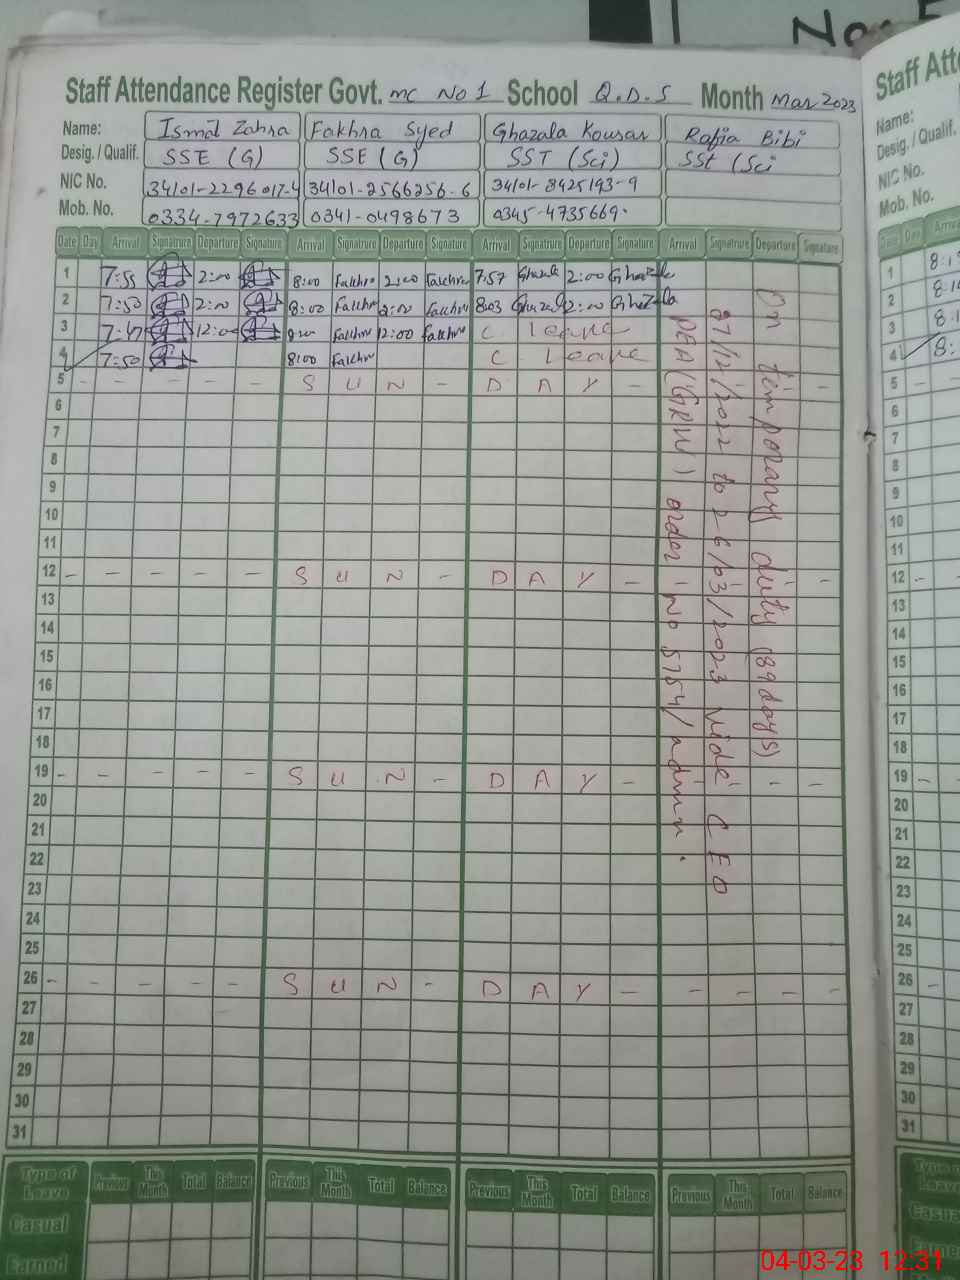 No
Staff Attendance Register Govt. mc No 1 School Q.D.S Month Mar 2023
Staff Att
Name: Ismat Zahra Fakhra Syed Ghazala Kousar Rafia Bibi
Name:
Desig. / Qualif. SSE (G) SSE (G) SST (Sci) SSt (Sci
Desig. / Qualif.
NIC No. 34101-2296017-4 34101-2566256-6 34101-8425193-9
NIC No.
Mob. No. 0334-7972633 0341-0498673 0345-4735669.
Mob. No.
Date Day Arrival Signatrure Departure Signature Arrival Signatrure Departure Signature Arrival Signatrure Departure Signature Arrival Signatrure Departure Signature
Date Day Arriva
1 7:55 2:00 8:00 Fakhra 2:00 Fakhra 7:57 Ghazala 2:00 Ghazala
2 7:50 2:00 8:00 Fakhra 2:00 Fakhra 8:03 Ghazala 2:00 Ghazala
3 7:47 12:00 Fakhra 12:00 Fakhra C. leave
4 7:50 8:00 Fakhra C. leave
5 - - - - - S U N - D A Y - -
6
7
8
9
10
11
12 - - - - - S U N - D A Y - -
13
14
15
16
17
18
19 - - - - - S U N - D A Y - - -
20
21
22
23
24
25
26 - - - - - S U N - D A Y - - - - -
27
28
29
30
31
On temporary duty (89 days)
27/12/2022 to 26/03/2023 vide CEO
DEA (GRW) order no 5754/admn.
1 8:1
2 8:10
3 8:1
4 8:
5 -
6
7
8
9
10
11
12 -
13
14
15
16
17
18
19 -
20
21
22
23
24
25
26 -
27
28
29
30
31
Type of Leave Previous This Month Total Balance Previous This Month Total Balance Previous This Month Total Balance Previous This Month Total Balance
Casual
Earned
Type o
Leave
Casua
Earne
04-03-23 12:31